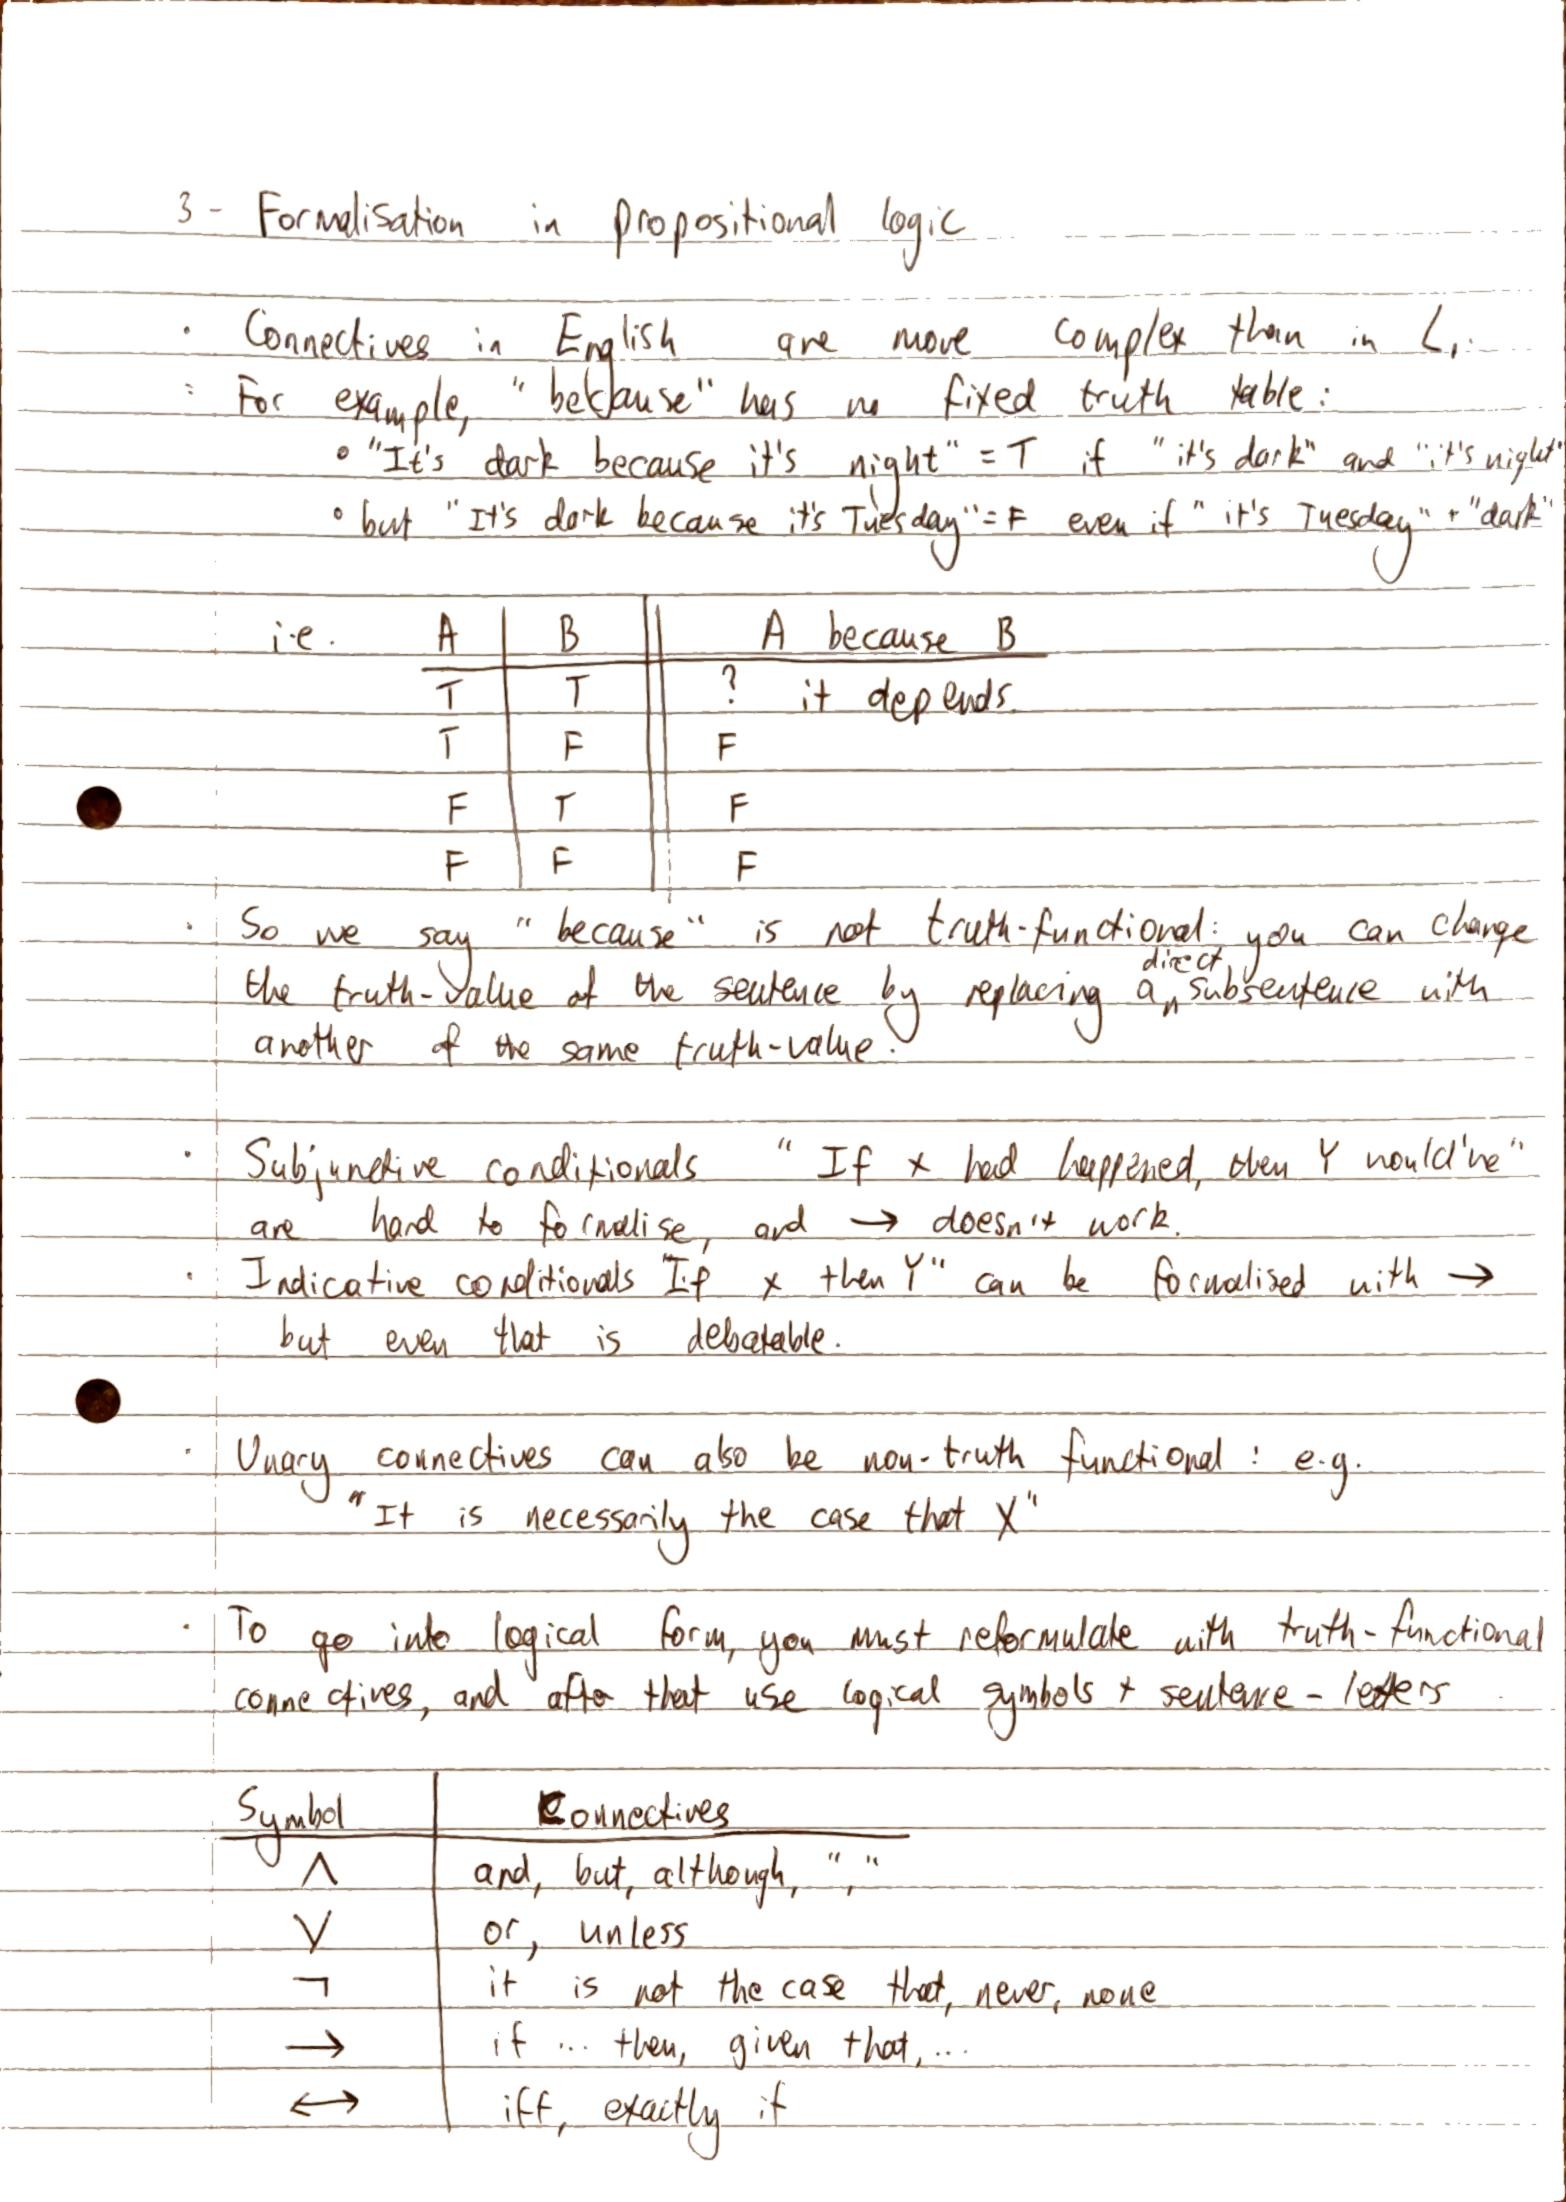 3 - Formalisation in propositional logic
• Connectives in English are more complex than in L₁.
• For example, "because" has no fixed truth table:
• "It's dark because it's night" = T if "it's dark" and "it's night"
• but "It's dark because it's Tuesday" = F even if "it's Tuesday" + "dark"
i.e. A B A because B
T T ? it depends.
T F F
F T F
F F F
• So we say "because" is not truth-functional: you can change
the truth-value of the sentence by replacing a direct subsentence with
another of the same truth-value.
• Subjunctive conditionals "If x had happened, then Y would've"
are hard to formalise, and → doesn't work.
• Indicative conditionals "If x then Y" can be formalised with →
but even that is debatable.
• Unary connectives can also be non-truth functional: e.g.
"It is necessarily the case that X"
• To go into logical form, you must reformulate with truth-functional
connectives, and after that use logical symbols + sentence-letters
Symbol Connectives
∧ and, but, although, ","
∨ or, unless
¬ it is not the case that, never, none
→ if ... then, given that, ...
↔ iff, exactly if